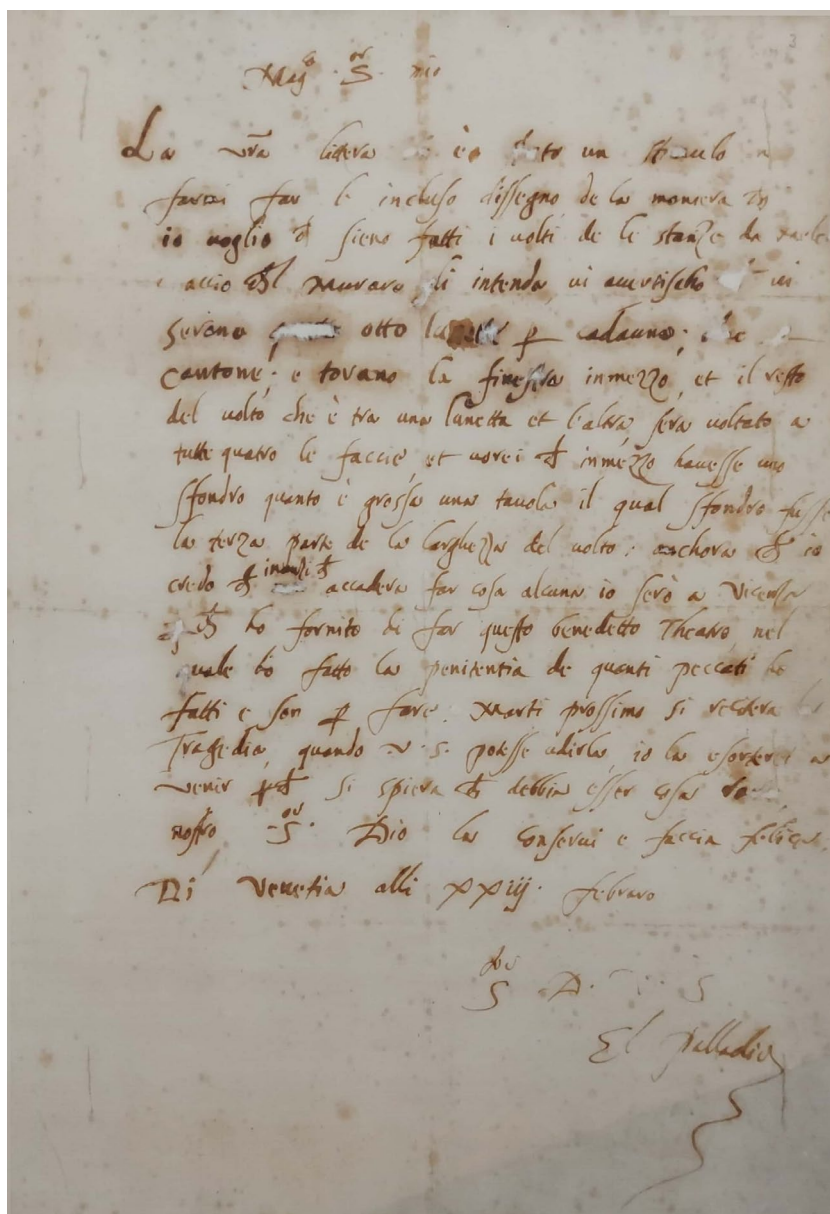 3
Mag.co S.or mio
La vra littera è stato un stimulo
farmi far l' incluso dissegno de la maniera
io voglio ch sieno fatti i volti de le stanze da
acciò ch'l muraro gli intenda, vi avertischo vi
serano otto lunette p cadauna;
cantone; e tovano la finestra inmezzo, et il resto
del volto che è tra una lunetta et l'altra, sera voltato a
tutte quatro le faccie, et vorei ch inmezzo havesse uno
sfondro quanto è grossa una tavola il qual sfondro fusse
la terza parte de la larghezza del volto; anchora ch io
credo ch inanzi ch accadera far cosa alcuna io serò a Vicenza
ho fornito di far questo benedetto Theatro nel
quale hò fatto la penitentia de quanti peccati ho
fatti e son p fare. Marti prossimo si recitera la
Tragedia, quando v. s. potesse udirla, io la esorterei a
venir pch si spiera ch debbia esser cosa
nostro S.or Dio la conservi e faccia felice.
Di Venetia alli xxiij. febraro
D. S
El Palladio